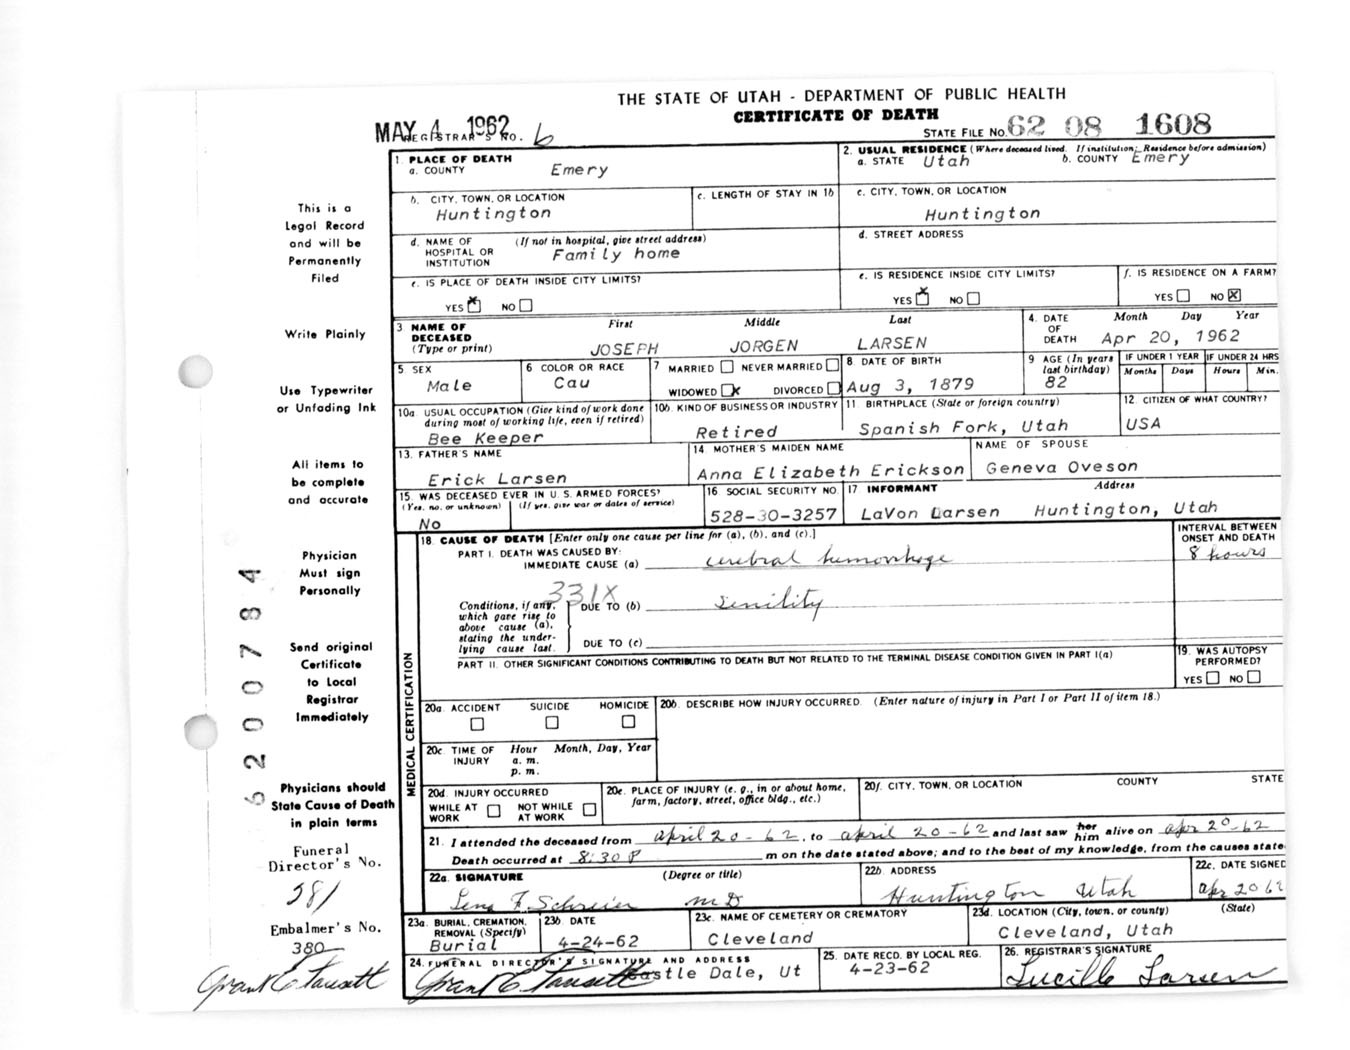 THE STATE OF UTAH - DEPARTMENT OF PUBLIC HEALTH
CERTIFICATE OF DEATH
MAY 4 1962
REGISTRAR'S NO. 6
STATE FILE NO. 62 08 1608
This is a
Legal Record
and will be
Permanently
Filed
Write Plainly
Use Typewriter
or Unfading Ink
All items to
be complete
and accurate
Physician
Must sign
Personally
Send original
Certificate
to Local
Registrar
Immediately
Physicians should
State Cause of Death
in plain terms
Funeral
Director's No.
381
Embalmer's No.
380
Grant E Fausett
6200784
1. PLACE OF DEATH
a. COUNTY Emery
2. USUAL RESIDENCE (Where deceased lived. If institution; Residence before admission)
a. STATE Utah b. COUNTY Emery
b. CITY, TOWN, OR LOCATION
Huntington
c. LENGTH OF STAY IN 1b
c. CITY, TOWN, OR LOCATION
Huntington
d. NAME OF HOSPITAL OR INSTITUTION (If not in hospital, give street address)
Family home
d. STREET ADDRESS
e. IS PLACE OF DEATH INSIDE CITY LIMITS?
YES x NO
e. IS RESIDENCE INSIDE CITY LIMITS?
YES x NO
f. IS RESIDENCE ON A FARM?
YES NO x
3 NAME OF DECEASED (Type or print)
First Middle Last
JOSEPH JORGEN LARSEN
4. DATE OF DEATH
Month Day Year
Apr 20, 1962
5 SEX
Male
6 COLOR OR RACE
Cau
7 MARRIED NEVER MARRIED
WIDOWED x DIVORCED
8 DATE OF BIRTH
Aug 3, 1879
9 AGE (In years last birthday)
82
IF UNDER 1 YEAR
Months Days
IF UNDER 24 HRS
Hours Min.
10a. USUAL OCCUPATION (Give kind of work done during most of working life, even if retired)
Bee Keeper
10b. KIND OF BUSINESS OR INDUSTRY
Retired
11 BIRTHPLACE (State or foreign country)
Spanish Fork, Utah
12. CITIZEN OF WHAT COUNTRY?
USA
13. FATHER'S NAME
Erick Larsen
14. MOTHER'S MAIDEN NAME
Anna Elizabeth Erickson
NAME OF SPOUSE
Geneva Oveson
15. WAS DECEASED EVER IN U. S. ARMED FORCES?
(Yes, no, or unknown) (If yes, give war or dates of service)
No
16 SOCIAL SECURITY NO.
528-30-3257
17 INFORMANT Address
LaVon Larsen Huntington, Utah
MEDICAL CERTIFICATION
18. CAUSE OF DEATH [Enter only one cause per line for (a), (b), and (c).]
INTERVAL BETWEEN ONSET AND DEATH
8 hours
PART I. DEATH WAS CAUSED BY:
IMMEDIATE CAUSE (a) cerebral hemorrhage
331X
Conditions, if any, which gave rise to above cause (a), stating the underlying cause last.
DUE TO (b) senility
DUE TO (c)
PART II. OTHER SIGNIFICANT CONDITIONS CONTRIBUTING TO DEATH BUT NOT RELATED TO THE TERMINAL DISEASE CONDITION GIVEN IN PART I(a)
19. WAS AUTOPSY PERFORMED?
YES NO
20a. ACCIDENT SUICIDE HOMICIDE
20b. DESCRIBE HOW INJURY OCCURRED. (Enter nature of injury in Part I or Part II of item 18.)
20c. TIME OF INJURY Hour Month, Day, Year
a. m.
p. m.
20d. INJURY OCCURRED
WHILE AT WORK NOT WHILE AT WORK
20e. PLACE OF INJURY (e. g., in or about home, farm, factory, street, office bldg., etc.)
20f. CITY, TOWN, OR LOCATION COUNTY STATE
21. I attended the deceased from april 20-62, to april 20-62 and last saw her him alive on apr 20-62
Death occurred at 8:30 P m on the date stated above; and to the best of my knowledge, from the causes state
22a. SIGNATURE (Degree or title)
F. Schreier MD
22b. ADDRESS
Huntington Utah
22c. DATE SIGNED
apr 20 62
23a. BURIAL, CREMATION, REMOVAL (Specify)
Burial
23b. DATE
4-24-62
23c. NAME OF CEMETERY OR CREMATORY
Cleveland
23d. LOCATION (City, town, or county) (State)
Cleveland, Utah
24. FUNERAL DIRECTOR'S SIGNATURE AND ADDRESS
Grant E Fausett Castle Dale, Ut
25. DATE RECD. BY LOCAL REG.
4-23-62
26. REGISTRAR'S SIGNATURE
Lucille Larsen